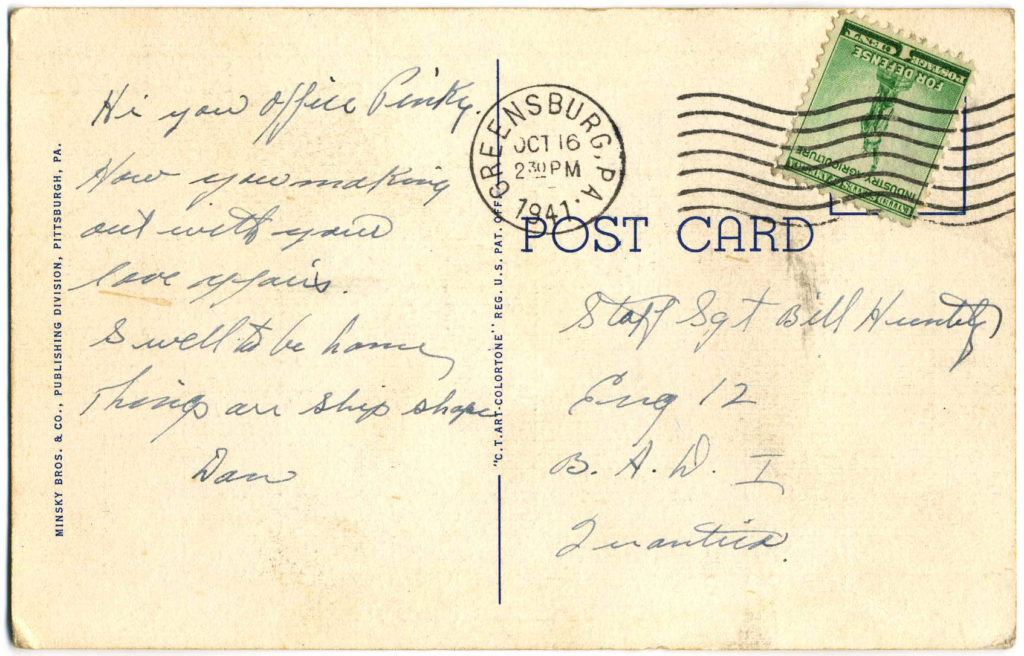 Hi you office Pinky.
How you making
out with your
love affairs.
Swell to be home,
Things are ship shape
Dan
MINSKY BROS. & CO., PUBLISHING DIVISION, PITTSBURGH, PA.
"C.T. ART-COLORTONE" REG. U.S. PAT. OFF.
GREENSBURG, PA.
OCT 16
2 30 PM
1941
POSTAGE 1 CENT
FOR DEFENSE
INDUSTRY AGRICULTURE
POST CARD
Staff Sgt Bill
Eng 12
B. A. D. I
Quantico